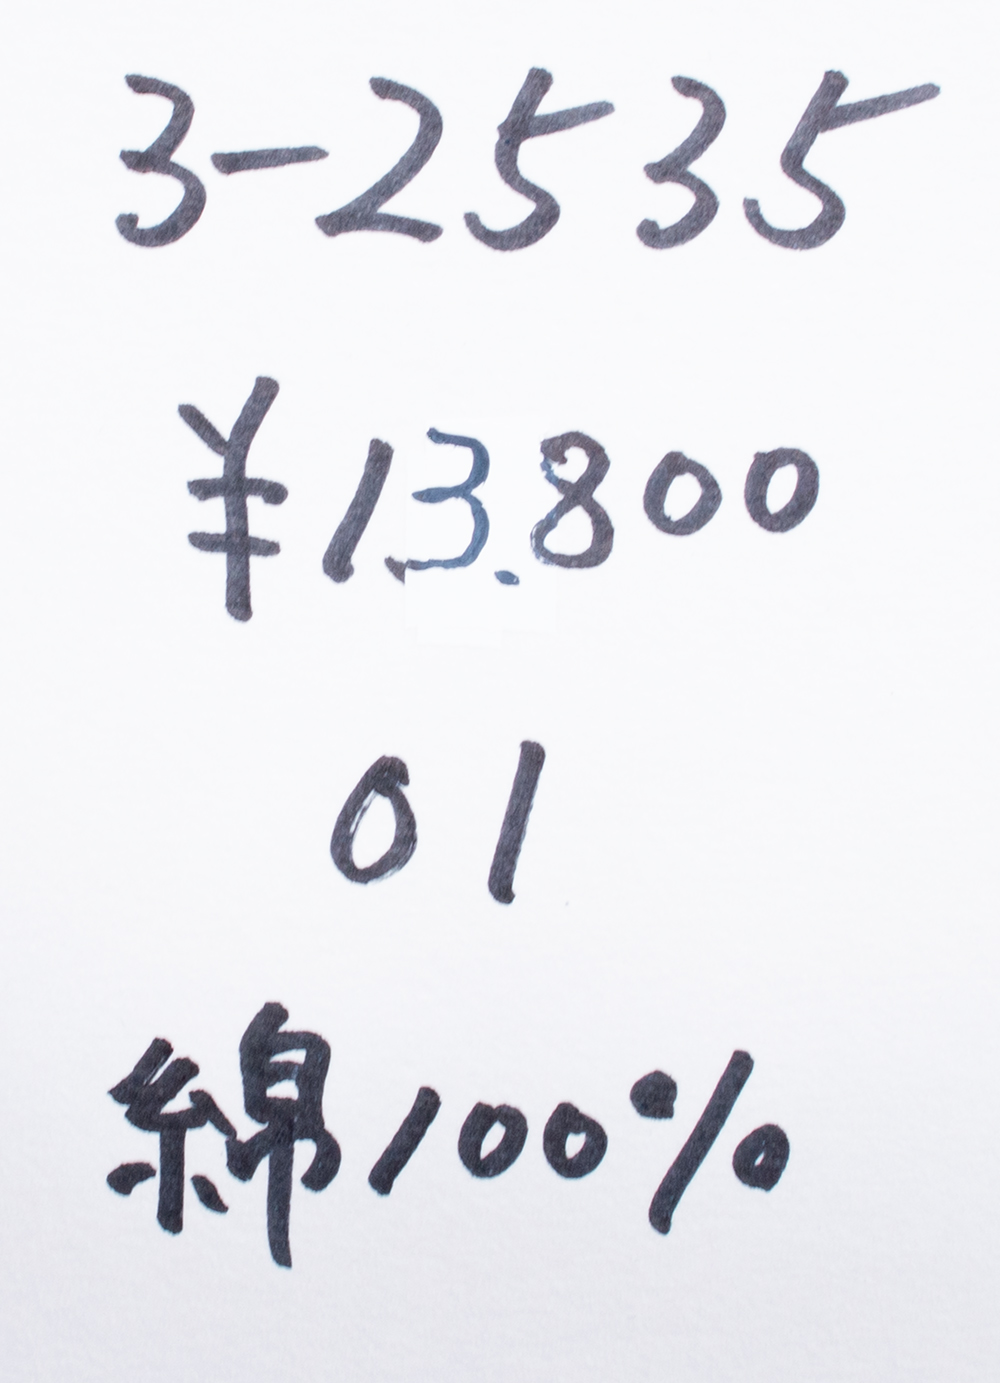 3-2535
¥13.800
01
綿100%